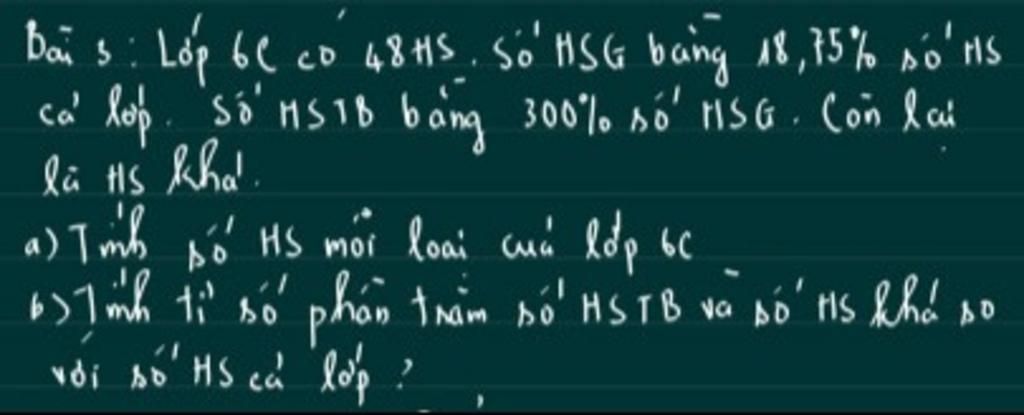 Bài 3: Lớp 6C có 48HS. Số HSG bằng 18,75% số HS
cả lớp. Số HSTB bằng 300% số HSG. Còn lại
là HS khá.
a) Tính số HS mỗi loại của lớp 6C
b) Tính tỉ số phần trăm số HSTB và số HS khá so
với số HS cả lớp?